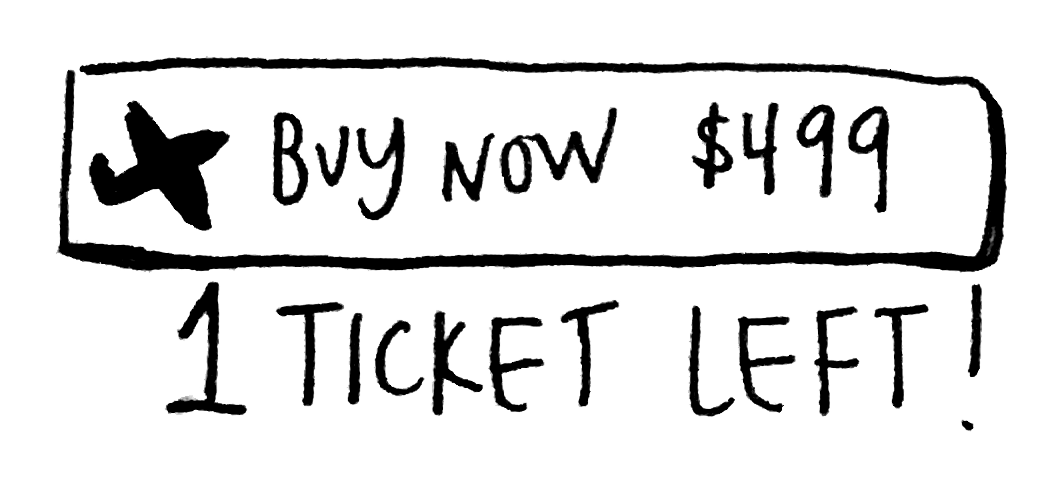 BUY NOW $499
1 TICKET LEFT!